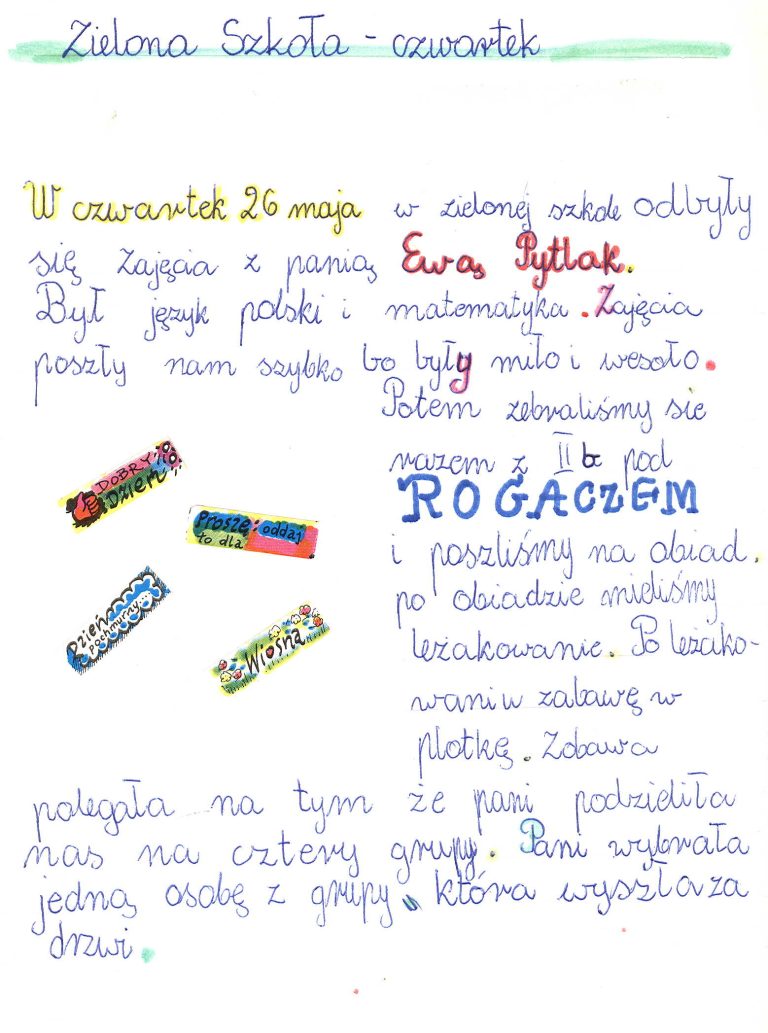 Zielona Szkoła - czwartek
W czwartek 26 maja w zielonej szkole odbyły
się zajęcia z panią Ewą Pytlak.
Był język polski i matematyka. Zajęcia
poszły nam szybko bo były miło i wesoło.
Potem zebraliśmy sie
razem z II b pod
ROGACZEM
i poszliśmy na obiad.
po obiedzie mieliśmy
leżakowanie. Po leżako-
waniu zabawę w
plotkę. Zabawa
DOBRY
Dzień
Proszę oddaj
to dla
Dzień
pochmurny
Wiosna
polegała na tym że pani podzieliła
nas na cztery grupy. Pani wybrała
jedną osobę z grupy, która wyszła za
drzwi.